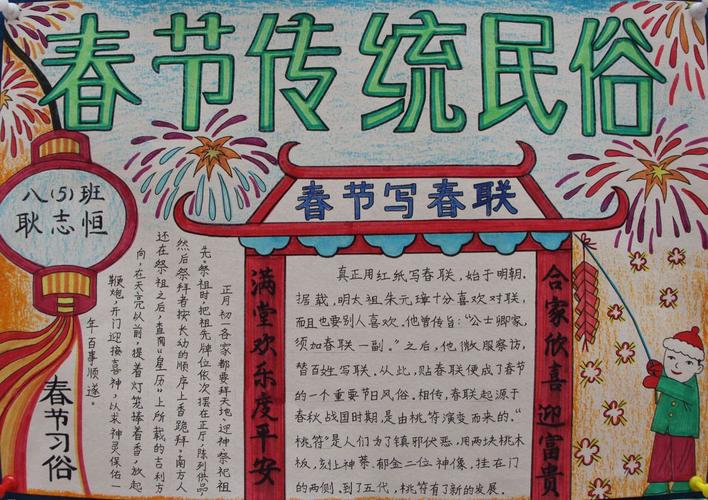 春节传统民俗
八(5)班
耿志恒
春节写春联
满堂欢乐度平安
合家欣喜迎富贵
真正用红纸写春联，始于明朝.
据载，明太祖朱元璋十分喜欢对联，
而且也要别人喜欢.他曾传旨："公士卿家，
须加春联一副。"之后，他微服察访，
替百姓写联.从此，贴春联便成了春节
的一个重要节日风俗.相传，春联起源于
春秋战国时期，是由桃符演变而来的."
桃符"是人们为了镇邪伏恶，用两块桃木
板，刻上神荼.郁金二位神像，挂在门
的两侧.到了五代，桃符有了新的发展.
正月初一各家都要拜天地.迎神.祭祀祖
先.祭祖时，把祖先牌位依次摆在正厅，陈列供品
然后祭拜者按长幼的顺序上香跪拜.南方人
还在祭祖之后，查阅"皇历"上所载的吉利方
向，在天亮以前，提着灯笼捧着香，放起
鞭炮，开门迎接喜神，以求神灵保佑一
年百事顺遂。
春节习俗